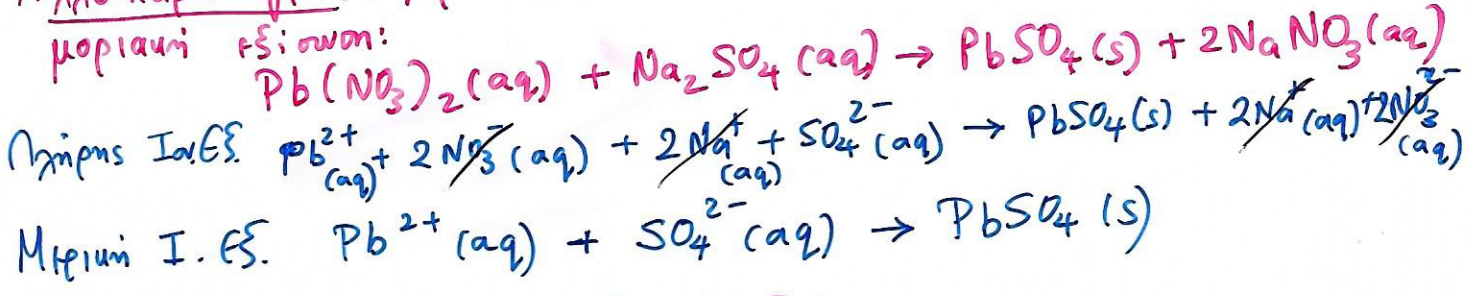 μοριακή εξίσωση:
Pb(NO₃)₂(aq) + Na₂SO₄(aq) → PbSO₄(s) + 2NaNO₃(aq)
Πλήρης Ιον.Εξ. Pb²⁺(aq) + 2NO₃⁻(aq) + 2Na⁺(aq) + SO₄²⁻(aq) → PbSO₄(s) + 2Na⁺(aq) + 2NO₃²⁻(aq)
Μερική Ι. Εξ. Pb²⁺(aq) + SO₄²⁻(aq) → PbSO₄(s)